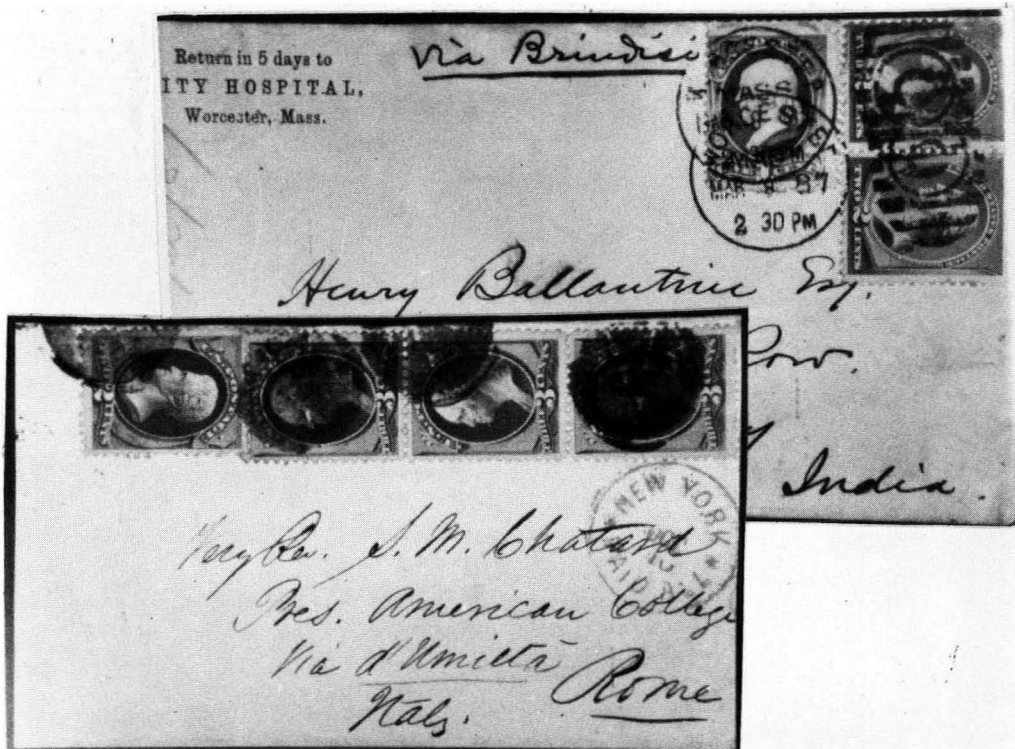 Return in 5 days to
ITY HOSPITAL,
Worcester, Mass.
via Brindisi
MASS
MAR 8 87
2 30 PM
Henry Ballantine Esq.
Row.
India.
NEW YORK
PAID ALL
Very Rev. S. M. Chatard
Pres. American College
Via d'Umiltà
Rome
Italy.